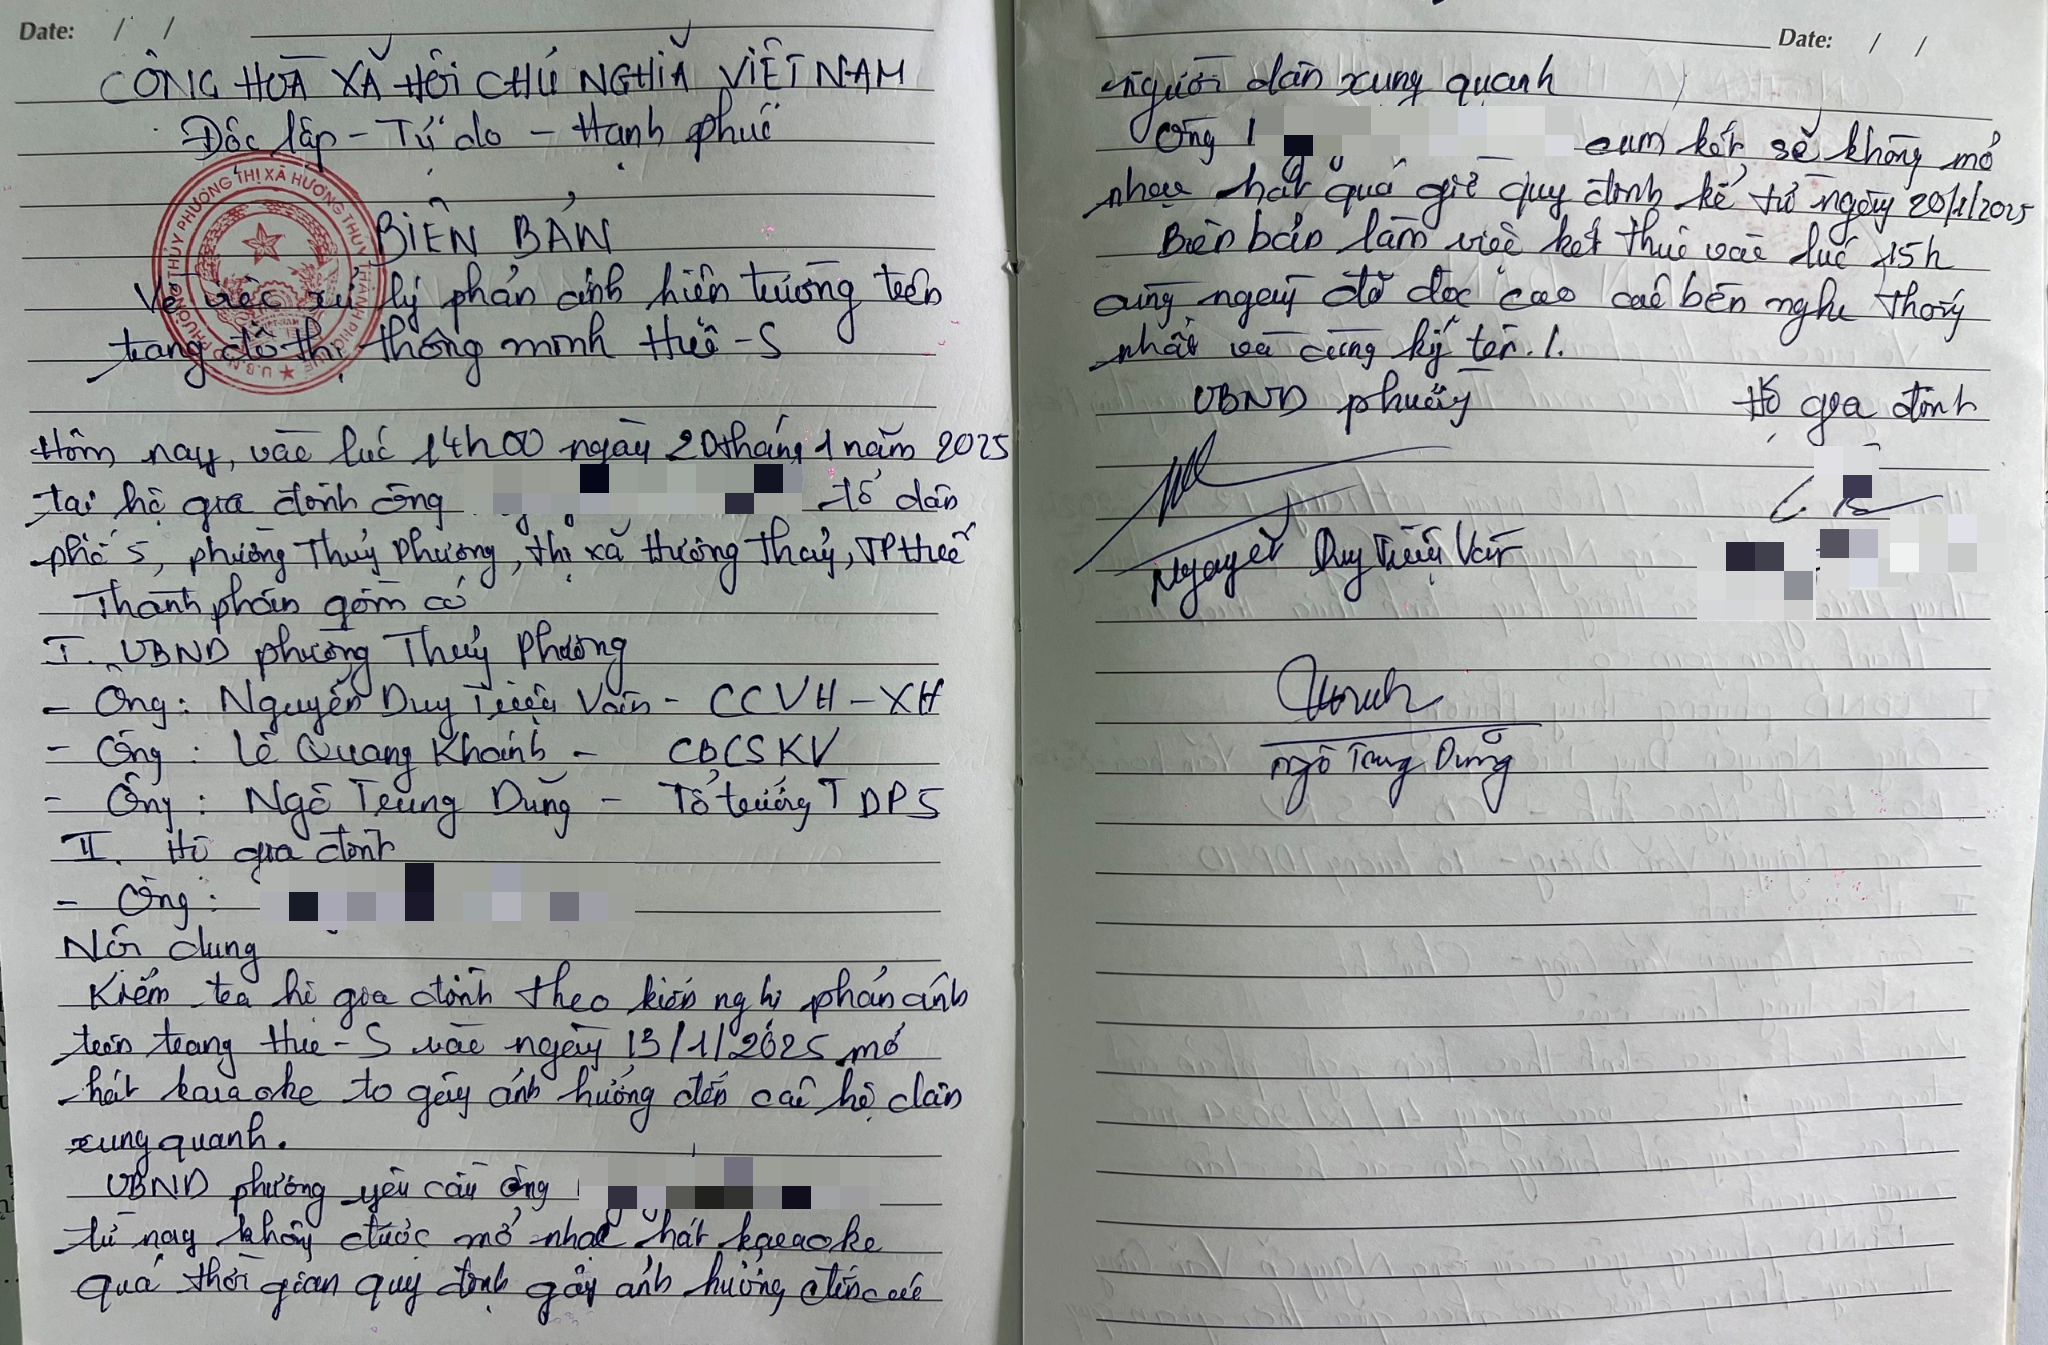 Date: / /
CỘNG HOÀ XÃ HỘI CHỦ NGHĨA VIỆT NAM
Độc lập - Tự do - Hạnh phúc
BIÊN BẢN
Về việc xử lý phản ánh hiện trường trên
trang đô thị thông minh Huế - S
Hôm nay, vào lúc 14h00 ngày 20 tháng 1 năm 2025
tại hộ gia đình ông tổ dân
phố 5, phường Thuỷ Phương, thị xã Hương Thuỷ, TP Huế
Thành phần gồm có
I. UBND phường Thuỷ Phương
- Ông: Nguyễn Duy Triệu Vân - CCVH - XH
- Ông: Lê Quang Khánh - CBCSKV
- Ông: Ngô Trung Dũng - Tổ trưởng TDP5
II. Hộ gia đình
- Ông:
Nội dung
Kiểm tra hộ gia đình theo kiến nghị phản ánh
trên trang Hue-S vào ngày 13/1/2025 mở
hát karaoke to gây ảnh hưởng đến các hộ dân
xung quanh.
UBND phường yêu cầu ông
từ nay không được mở nhạc hát karaoke
quá thời gian quy định gây ảnh hưởng đến các
Date: / /
người dân xung quanh
Ông cam kết sẽ không mở
nhạc hát quá giờ quy định kể từ ngày 20/1/2025
Biên bản làm việc kết thúc vào lúc 15h
cùng ngày đã đọc cho các bên nghe thống
nhất và cùng ký tên./.
UBND phường Hộ gia đình
Nguyễn Duy Triệu Vân
Ngô Trung Dũng